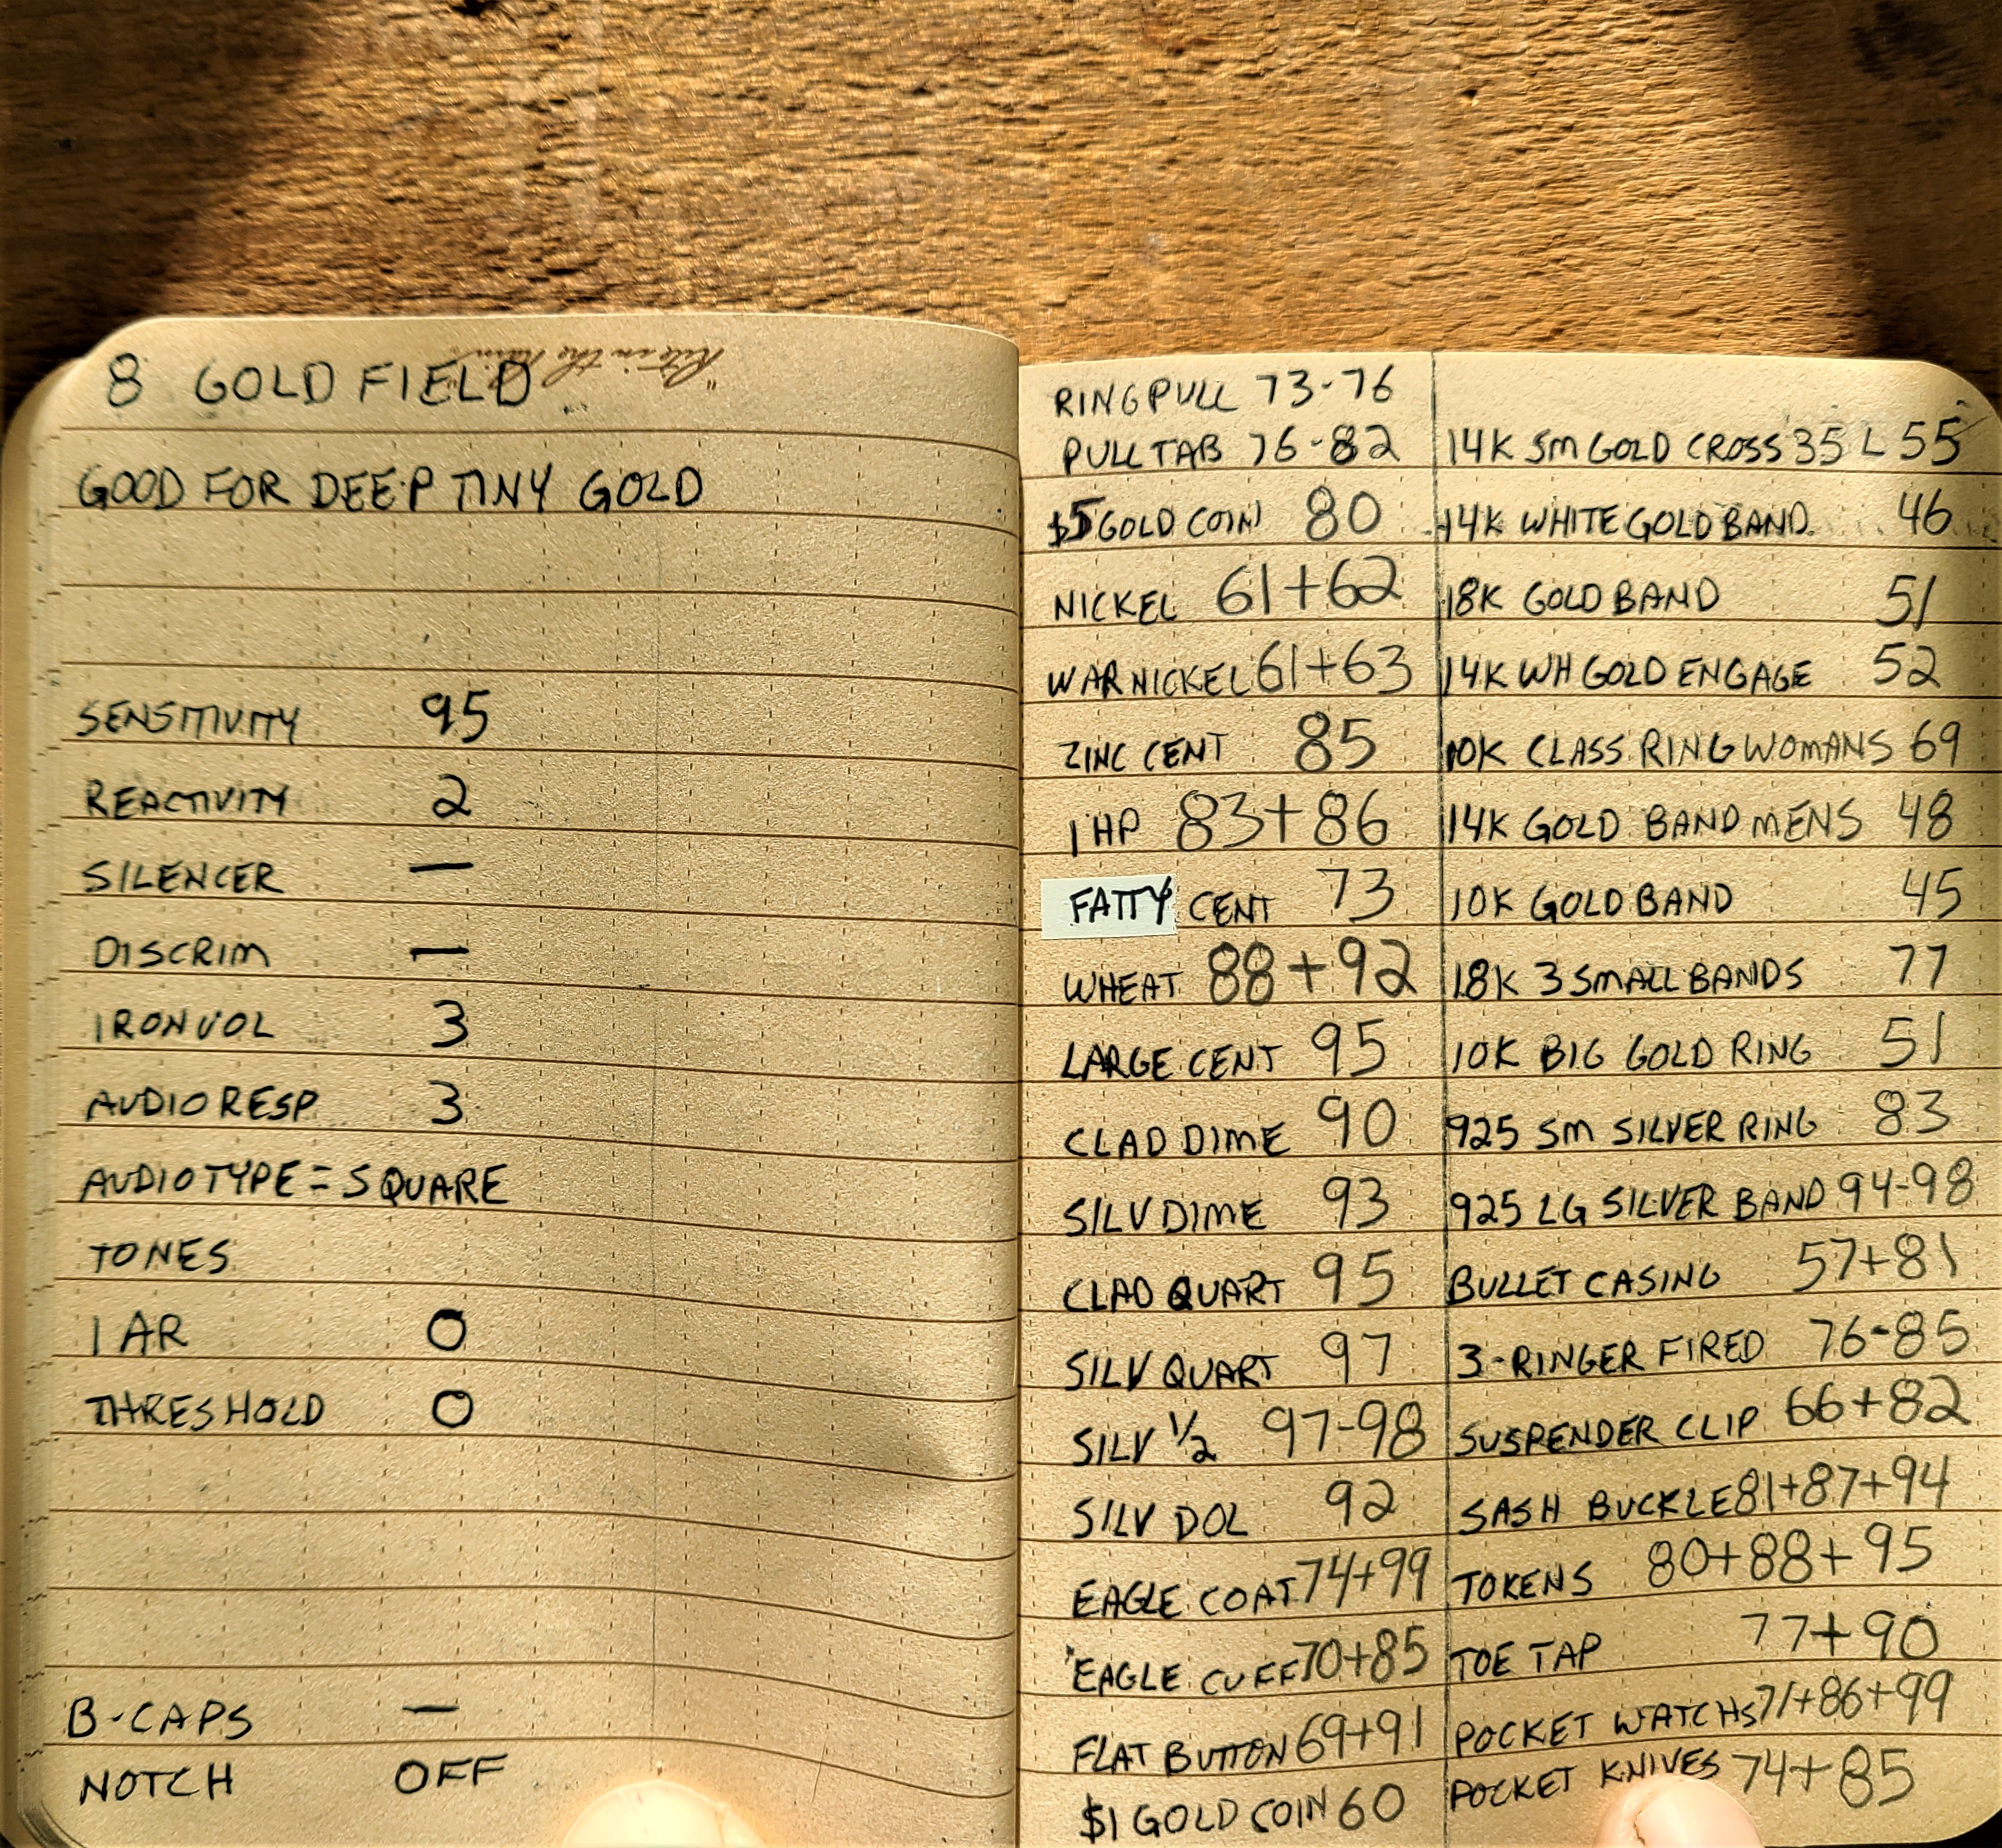 "Rite in the Rain"
8 GOLD FIELD
GOOD FOR DEEP TINY GOLD
SENSITIVITY 95
REACTIVITY 2
SILENCER —
DISCRIM —
IRON VOL 3
AUDIO RESP 3
AUDIO TYPE = SQUARE
TONES
IAR 0
THRESHOLD 0
B-CAPS —
NOTCH OFF
RING PULL 73-76
PULL TAB 76-82
$5 GOLD COIN 80
NICKEL 61+62
WAR NICKEL 61+63
ZINC CENT 85
IHP 83+86
FATTY CENT 73
WHEAT 88+92
LARGE CENT 95
CLAD DIME 90
SILV DIME 93
CLAD QUART 95
SILV QUART 97
SILV 1/2 97-98
SILV DOL 92
EAGLE COAT 74+99
EAGLE CUFF 70+85
FLAT BUTTON 69+91
$1 GOLD COIN 60
14K SM GOLD CROSS 35 L 55
14K WHITE GOLD BAND 46
18K GOLD BAND 51
14K WH GOLD ENGAGE 52
10K CLASS RING WOMANS 69
14K GOLD BAND MENS 48
10K GOLD BAND 45
18K 3 SMALL BANDS 77
10K BIG GOLD RING 51
925 SM SILVER RING 83
925 LG SILVER BAND 94-98
BULLET CASING 57+81
3-RINGER FIRED 76-85
SUSPENDER CLIP 66+82
SASH BUCKLE 81+87+94
TOKENS 80+88+95
TOE TAP 77+90
POCKET WATCHS 71+86+99
POCKET KNIVES 74+85